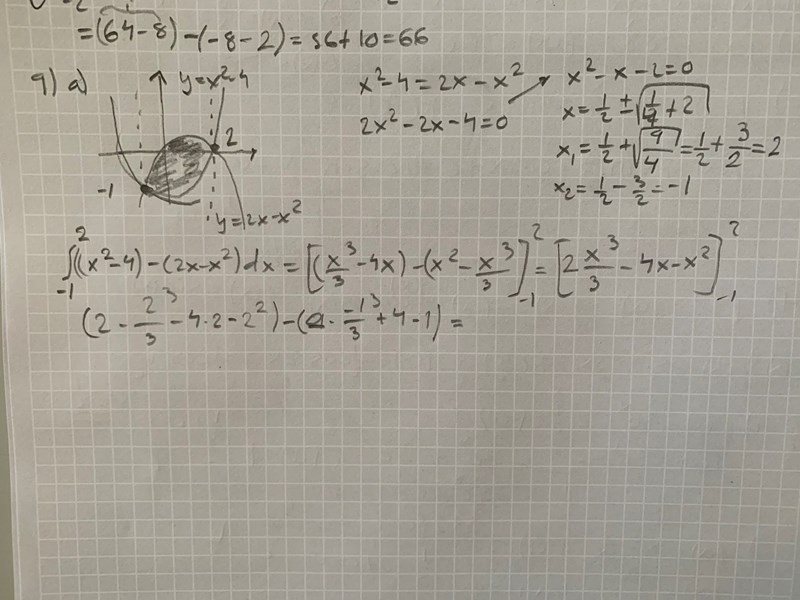 =(64-8)-(-8-2)=56+10=66
9) a)
y=x²-4
2
-1
y=2x-x²
x²-4=2x-x²
2x²-2x-4=0
x²-x-2=0
x=1/2±√(1/4+2)
x₁=1/2+√(9/4)=1/2+3/2=2
x₂=1/2-3/2=-1
∫₋₁²(x²-4)-(2x-x²)dx=[(x³/3-4x)-(x²-x³/3)]₋₁²=[2x³/3-4x-x²]₋₁²
(2·2³/3-4·2-2²)-(2·-1³/3+4-1)=